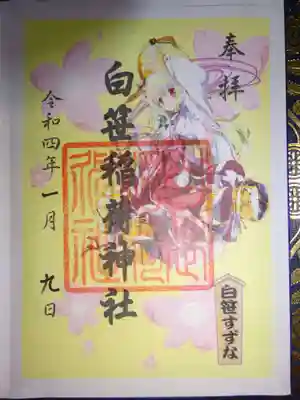 奉拝
白笹稲荷神社
令和四年一月九日
白笹すずな